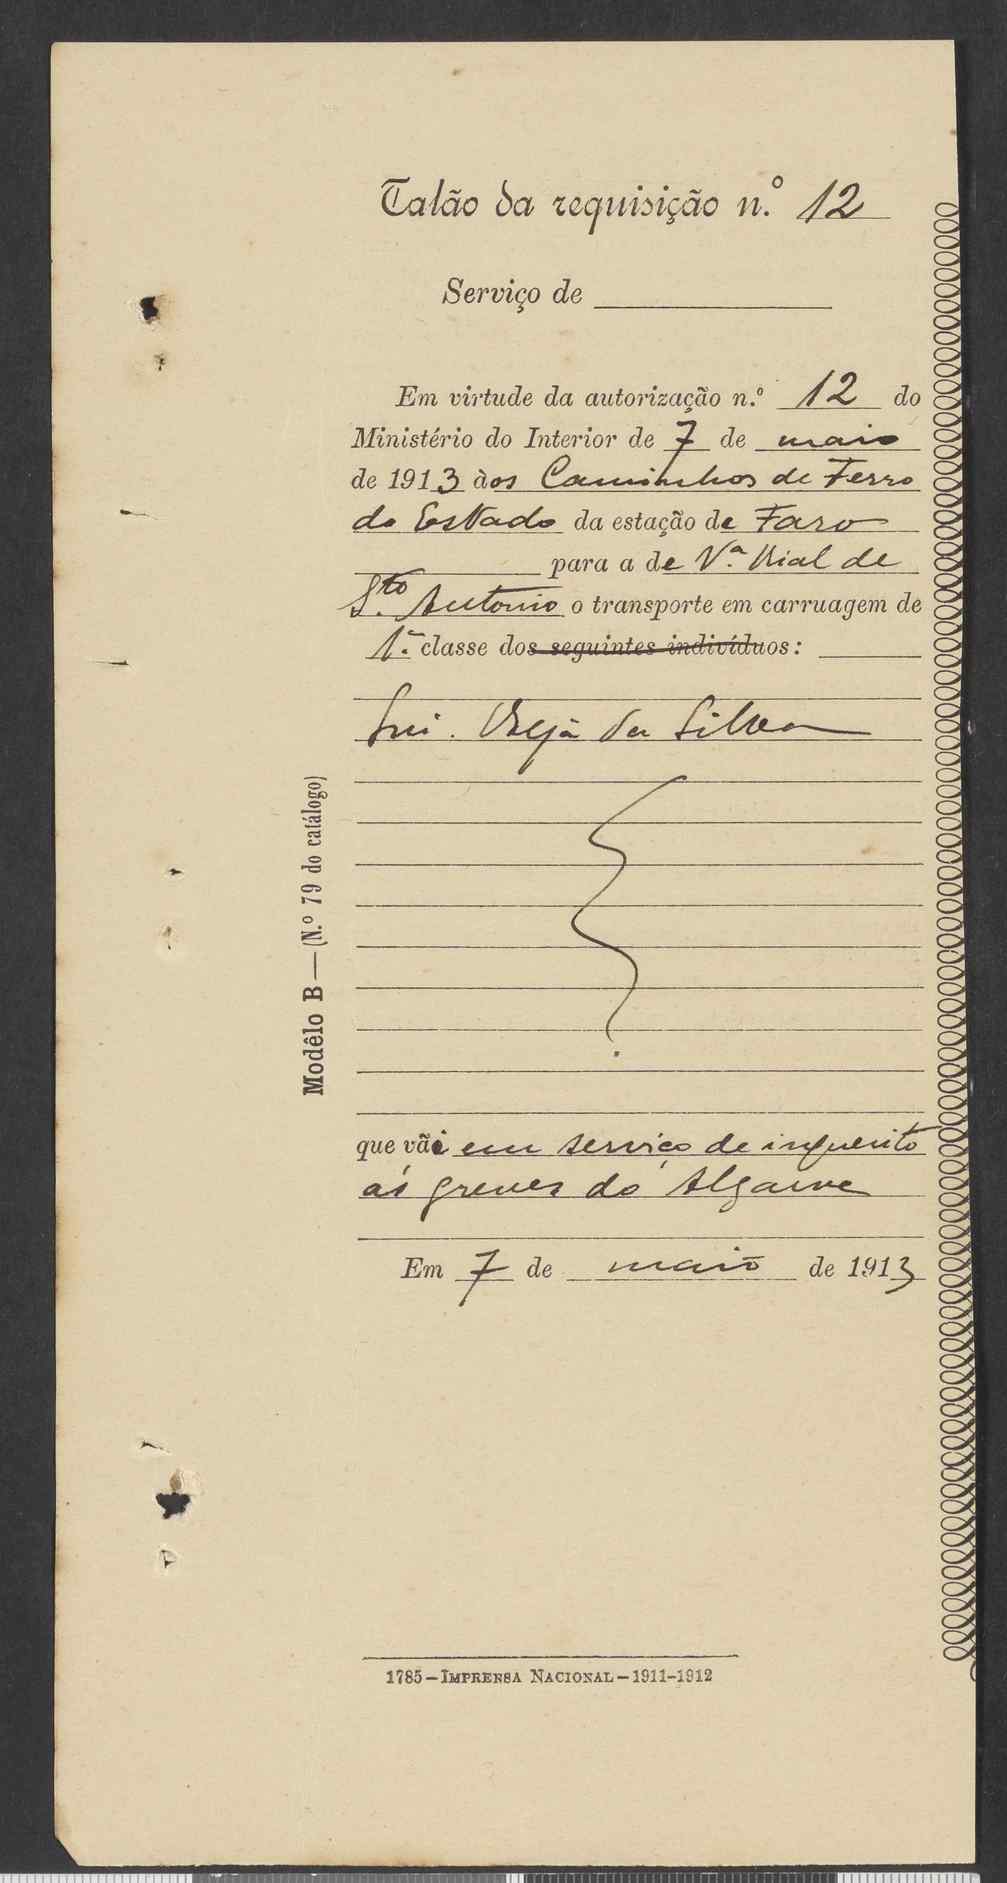 Talão da requisição n.º 12
Serviço de
Em virtude da autorização n.º 12 do
Ministério do Interior de 7 de maio
de 1913 àos Caminhos de Ferro
do Estado da estação de Faro
para a de V.ª Rial de
S.to Antonio o transporte em carruagem de
1.ª classe dos seguintes indivíduos:
da Silva
Modêlo B — (N.º 79 do catálogo)
que vãi em serviço de inquerito
ás greves do Algarve
Em 7 de maio de 1913
1785 — IMPRENSA NACIONAL — 1911-1912